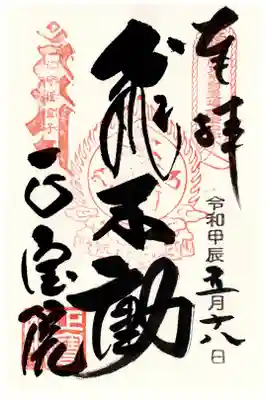 奉拝
令和甲辰五月十八日
飛不動
正宝院